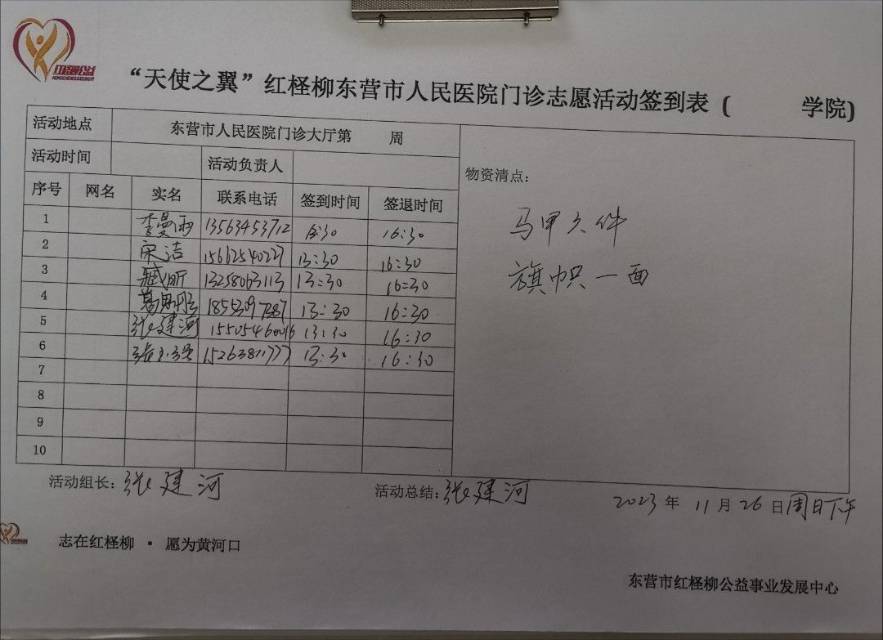 红柽柳公益
“天使之翼”红柽柳东营市人民医院门诊志愿活动签到表 ( 学院)
活动地点 东营市人民医院门诊大厅第 周
活动时间 活动负责人
序号 网名 实名 联系电话 签到时间 签退时间
1 李曼雨 13563453712 16:30
2 宋洁 15662540227 13:30 16:30
3 臧昕 13258063113 13:30 16:30
4 13:30 16:30
5 张建河 15505460016 13:30 16:30
6 15263811777 13:30 16:30
7
8
9
10
物资清点:
马甲六件
旗帜一面
活动组长: 张建河 活动总结: 张建河 2023年 11月26日周日下午
志在红柽柳 · 愿为黄河口
东营市红柽柳公益事业发展中心